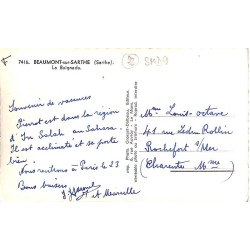 7416. BEAUMONT-sur-SARTHE (Sarthe).
La Baignade.
Souvenir de vacances
Pierrot est dans la région
d'In Salah au Sahara
Il est acclimaté et se porte
bien.
Nous rentrons à Paris le 23
Bons baisers
et Marcelle
Mme Louis-Octave
41 rue Ledru Rollin
Rochefort s/Mer
(Charente Mme)